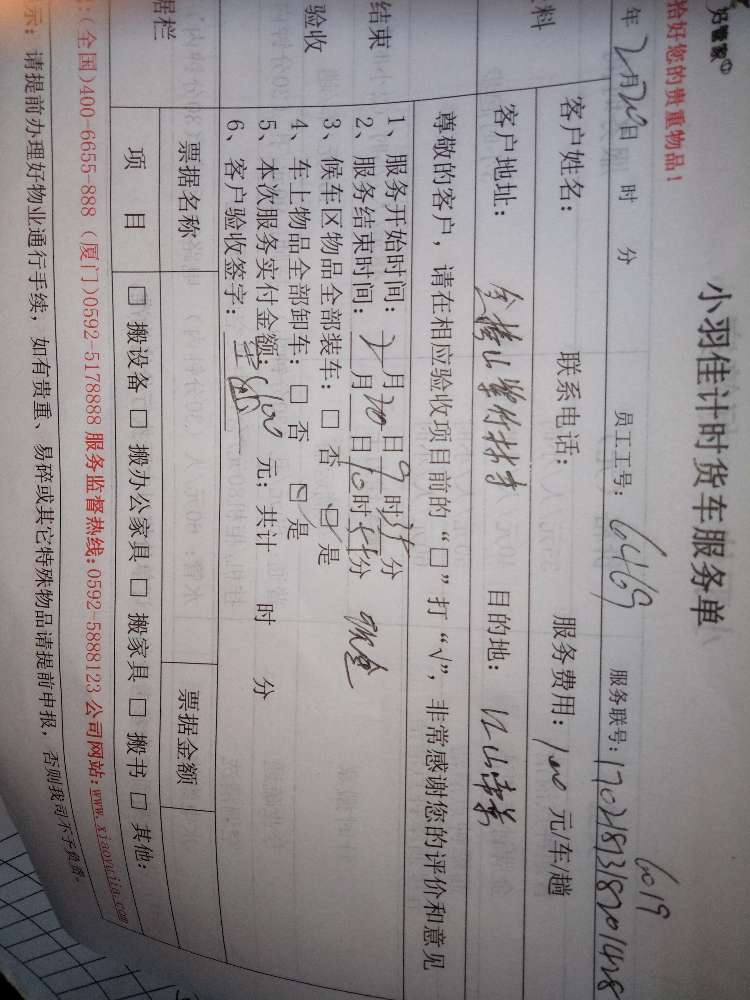 好管家
小羽佳计时货车服务单
拾好您的贵重物品！
6019
年2月20日 时 分 员工工号：6469 服务联号：1702181318201428
客户姓名： 联系电话： 服务费用：100元/车/趟
料
客户地址： 目的地：
尊敬的客户，请在相应验收项目前的“□”打“√”，非常感谢您的评价和意见
结束
验收
1、服务开始时间：2月20日9时35分
2、服务结束时间：2月20日10时分 现金
3、候车区物品全部装车：□ 否 ☑ 是
4、车上物品全部卸车：□ 否 ☑ 是
5、本次服务实付金额： 元；共计 时 分
6、客户验收签字：
据栏
票据名称 票据金额
项 目 □ 搬设备 □ 搬办公家具 □ 搬家具 □ 搬书 □ 其他：
：(全国)400-6655-888 (厦门)0592-5178888 服务监督热线:0592-5888123 公司网站:www.xiaoyujia.com
示：请提前办理好物业通行手续，如有贵重、易碎或其它特殊物品请提前申报，否则我司不予负责。